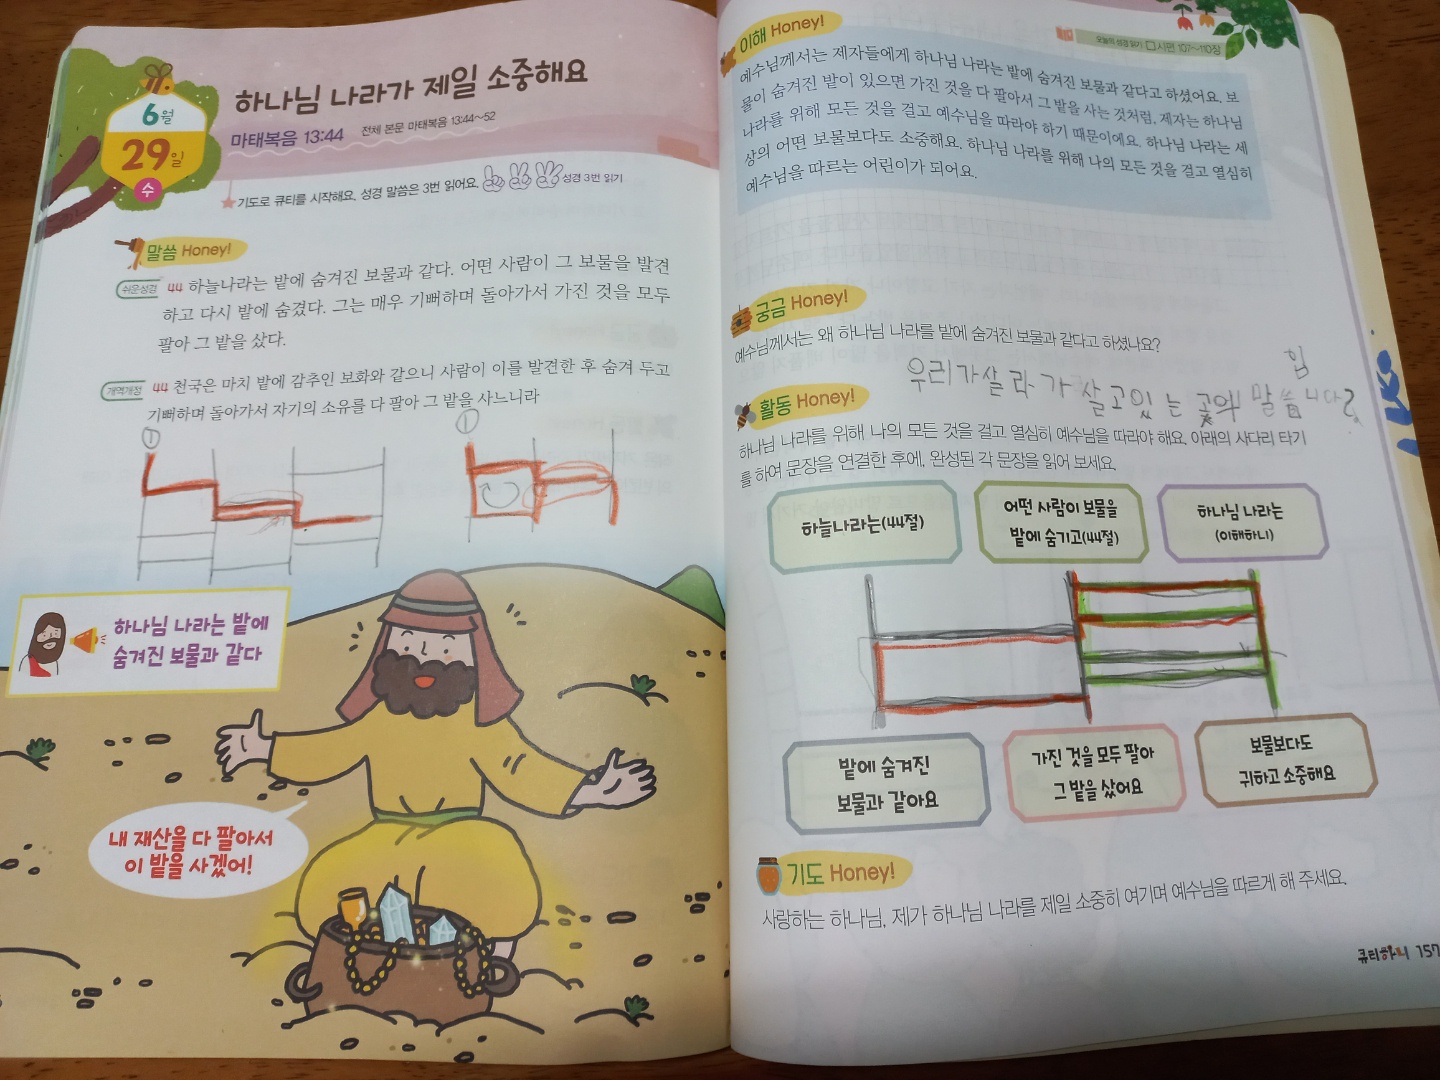 6월
29일
수
하나님 나라가 제일 소중해요
마태복음 13:44 전체 본문 마태복음 13:44~52
기도로 큐티를 시작해요. 성경 말씀은 3번 읽어요. 성경 3번 읽기
말씀 Honey!
쉬운성경 44 하늘나라는 밭에 숨겨진 보물과 같다. 어떤 사람이 그 보물을 발견
하고 다시 밭에 숨겼다. 그는 매우 기뻐하며 돌아가서 가진 것을 모두
팔아 그 밭을 샀다.
개역개정 44 천국은 마치 밭에 감추인 보화와 같으니 사람이 이를 발견한 후 숨겨 두고
기뻐하며 돌아가서 자기의 소유를 다 팔아 그 밭을 사느니라
① ①
하나님 나라는 밭에
숨겨진 보물과 같다
내 재산을 다 팔아서
이 밭을 사겠어!
이해 Honey!
오늘의 성경 읽기 □ 시편 107~110장
예수님께서는 제자들에게 하나님 나라는 밭에 숨겨진 보물과 같다고 하셨어요. 보
물이 숨겨진 밭이 있으면 가진 것을 다 팔아서 그 밭을 사는 것처럼, 제자는 하나님
나라를 위해 모든 것을 걸고 예수님을 따라야 하기 때문이에요. 하나님 나라는 세
상의 어떤 보물보다도 소중해요. 하나님 나라를 위해 나의 모든 것을 걸고 열심히
예수님을 따르는 어린이가 되어요.
궁금 Honey!
예수님께서는 왜 하나님 나라를 밭에 숨겨진 보물과 같다고 하셨나요?
우리가 살 라 가 살고있는 곳에 말씀 힘니다
활동 Honey!
하나님 나라를 위해 나의 모든 것을 걸고 열심히 예수님을 따라야 해요. 아래의 사다리 타기
를 하여 문장을 연결한 후에, 완성된 각 문장을 읽어 보세요.
하늘나라는(44절)
어떤 사람이 보물을
밭에 숨기고(44절)
하나님 나라는
(이해하니)
밭에 숨겨진
보물과 같아요
가진 것을 모두 팔아
그 밭을 샀어요
보물보다도
귀하고 소중해요
기도 Honey!
사랑하는 하나님, 제가 하나님 나라를 제일 소중히 여기며 예수님을 따르게 해 주세요.
큐티하니 157